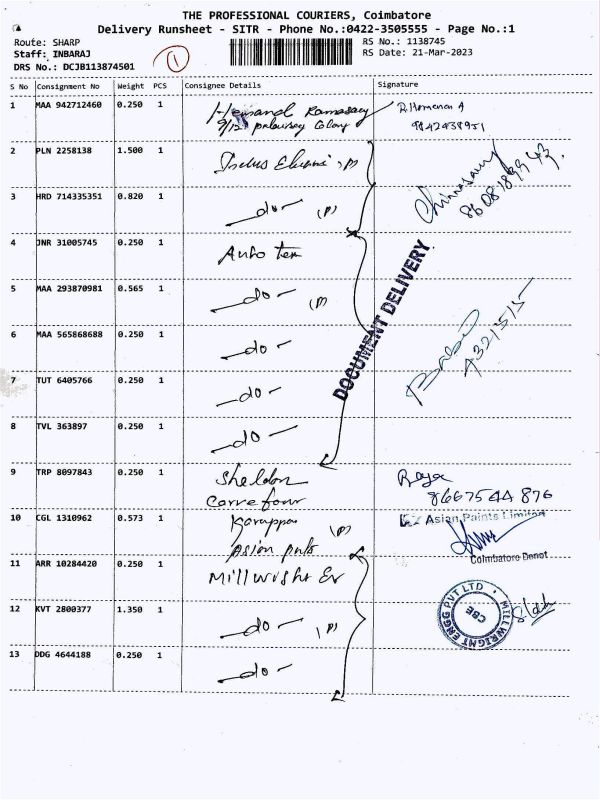 THE PROFESSIONAL COURIERS, Coimbatore
Delivery Runsheet - SITR - Phone No.:0422-3505555 - Page No.:1
Route: SHARP
Staff: INBARAJ
DRS No.: DCJB113874501
1
RS No.: 1138745
RS Date: 21-Mar-2023
S No Consignment No Weight PCS Consignee Details Signature
1 MAA 942712460 0.250 1
9/12 Colony
2 PLN 2258138 1.500 1 (P)
3 HRD 714335351 0.820 1 -do- (P)
4 JNR 31005745 0.250 1 Auto tex
5 MAA 293870981 0.565 1 -do- (P)
6 MAA 565868688 0.250 1 -do-
7 TUT 6405766 0.250 1 -do-
8 TVL 363897 0.250 1 -do-
DOCUMENT DELIVERY
9 TRP 8097843 0.250 1 Sheldon
8667544876
10 CGL 1310962 0.573 1 (P)
Asian Paints Limited
Coimbatore Depot
11 ARR 10284420 0.250 1
12 KVT 2800377 1.350 1 -do- (P)
MILLWRIGHT ENGG PVT LTD
CBE
13 DDG 4644188 0.250 1 -do-